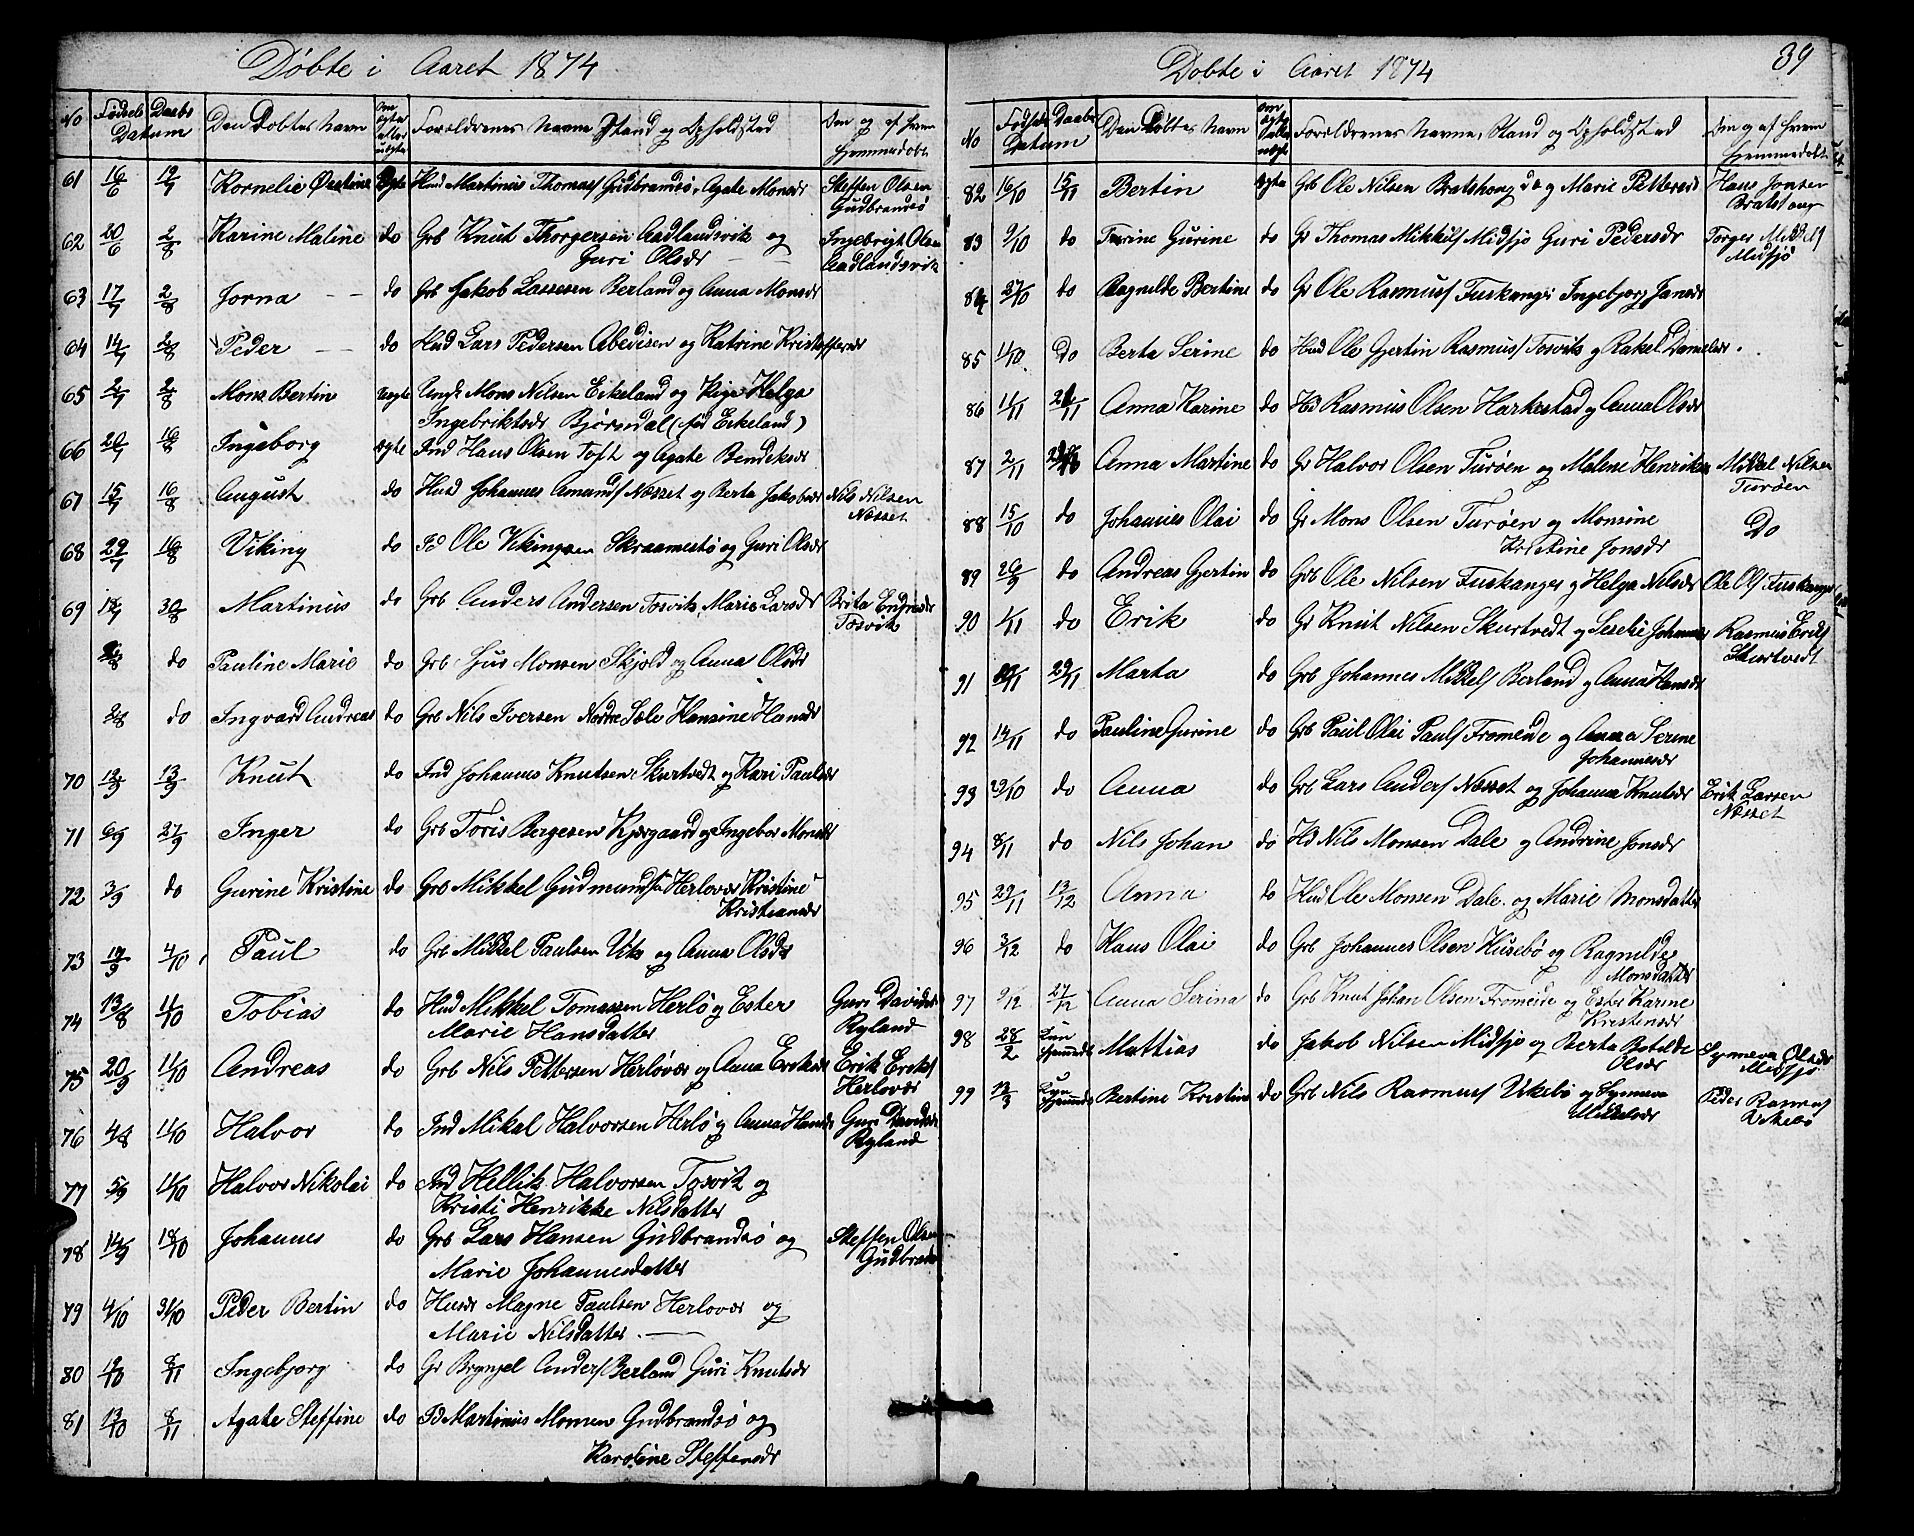 Døbte i Aaret 1874
No Fødsels Daabs Datum Den Døbtes Navn Om ægte eller uægte Forældrenes Navne Stand og Opholdsted Om og af hvem hjemmedøbt
61 16/6 19/7 Kornelie Øestine Ægte Hud Martinus Thomas/ Gudbrandsø, Agate Monsdr Steffen Olsen
Gudbrandsø
62 20/6 2/8 Karine Maline do Grb Knut Thorgersen Aadlandsvik og Ingebrigt Olsen
Guri Olsdr Aadlandsvik
63 17/7 2/8 Jorna do Grb Jakob Lassesen Berland og Anna Monsdr
64 14/7 2/8 Peder do Hud Lars Pedersen Abedisen og Katrine Kristoffersdr
65 2/7 2/8 Mons Bertin Uegte Ungk Mons Nilsen Eikeland og Pige Helga
Ingebriktsdr Bjørndal (fød Eikeland)
66 20/7 16/8 Ingeborg ægte Ind Hans Olsen Toft og Agate Bendiksdr
67 15/7 16/8 August do Husd Johannes Amunds/ Næsset og Berta Jakobsdr Nils Nilsen
Næsset
68 29/7 16/8 Viking do Id Ole Vikingsen Skraamestø og Guri Olsdr
69 12/7 30/8 Martinus do Grb Anders Andersen Tosvik, Marie Larsdr Brita Endresdr
Tosvik
do Pauline Marie do Grb Sjur Monsen Skjold og Anna Olsdr
2/8 do Ingvard Andreas do Grb Nils Iversen Nordre Sæle Hansine Hansdr
70 12/9 13/9 Knut do Ind Johannes Knutsen Skurtvedt og Kari Paulsdr
71 6/9 27/9 Inger do Grb Toris Børgesen Kjærgaard og Ingebor Monsdr
72 3/9 do Gurine Kristine do Grb Mikkel Gudmunds/ Herlovær Kristine
Kristiansdr
73 19/9 4/10 Paul do Grb Mikkel Paulsen Vik og Anna Olsdr
74 13/8 11/10 Tobias do Hud Mikkel Tomassen Herlø og Ester Guri Davidsdr
Marie Hansdatter Ryland
75 20/9 11/10 Andreas do Grb Nils Pettersen Herlovær og Anna Eriksdr Erik Eriks/
Herlovær
76 4/8 11/10 Halvor do Ind Mikal Halvorsen Herlø og Anna Hansdr Guri Davidsdr
Ryland
77 5/9 11/10 Halvor Nikolai do Ind Hellik Halvorsen Tosvik og
Kristi Henrikke Nilsdatter
78 14/9 18/10 Johannes do Grb Lars Hansen Gudbrandsø og Steffen Olsen
Marie Johannesdatter Gudbrands
79 4/10 31/10 Peder Bertin do Husdr Magne Paulsen Herlovær og
Marie Nilsdatter
80 12/10 8/11 Ingebjorg do Gr Brynjel Anders/ Berland Guri Knutsdr
81 13/10 8/11 Agate Steffine do Id Martinus Monsen Gudbrandsø og
Karoline Steffensdr
39
Døbte i Aaret 1874
No Fødsels Daabs Datum Den Døbtes Navn Om ægte eller uægte Forældrenes Navne, Stand og Opholdsted Om og af hvem hjemmedøbt
82 16/10 15/11 Bertin ægte Grb Ole Nilsen Bratshoug do og Marie Pettersdr Hans Jonsen
Bratshoug
83 9/10 do Turine Gurine do Gr Thomas Mikkels/ Midsjø Guri Pedersdr Torger Mikkels/
Midsjø
84 27/10 do Ragnilde Bertine do Gr Ole Rasmus/ Tuskanger Ingebjorg Jansdr
85 11/10 Do Berta Serine do Hud Ole Gjertin Rasmus/ Tosvik og Rakel Danielsdr
86 11/11 22/11 Anna Karine do Hd Rasmus Olsen Harkestad og Anna Olsdr
87 2/11 Anna Martine do Gr Halvor Olsen Turøen og Malene Henriks Mikal Nilsen
Turøen
88 15/10 do Johannes Olai do Gr Mons Olsen Turøen og Monsine Do
Kristine Jonsdr
89 26/9 do Andreas Gjertin do Grb Ole Nilsen Tuskanger og Helga Nilsdr Ole Ols/ Tuskanger
90 1/11 do Erik do Gr Knut Nilsen Skurtvedt og Seselie Johannes Rasmus Eriks/
Skurtvedt
91 10/11 29/11 Marta do Grb Johannes Mikkels/ Berland og Anna Hansdr
92 14/11 do Pauline Gurine do Grb Paul Olai Pauls/ Fromeide og Anna Serine
Johannesdr
93 29/10 do Anna do Grb Lars Anders/ Næsset og Johanna Knutsdr Erik Larsen
Næsset
94 8/11 do Nils Johan do Hd Nils Monsen Dale og Andrine Jonsdr
95 29/11 13/12 Anna do Hud Ole Monsen Dale og Marie Monsdatter
96 3/12 do Hans Olai do Grb Johannes Olsen Husebø og Ragnilde
Monsdatter
97 9/12 27/12 Anna Serina do Grb Knut Johan Olsen Fromeide og Ester Karine
Kristensdr
98 28/2 Kun hjemmedt Mattias do Jakob Nilsen Midsjø og Berta Botilde Synneva Olsdr
Olsdr Midsjø
99 12/3 Kun hjemmedt Bertine Kristine do Grb Nils Rasmus/ Uskebø og Synneva Peder Rasmus/
Mikkelsdr Uskebø